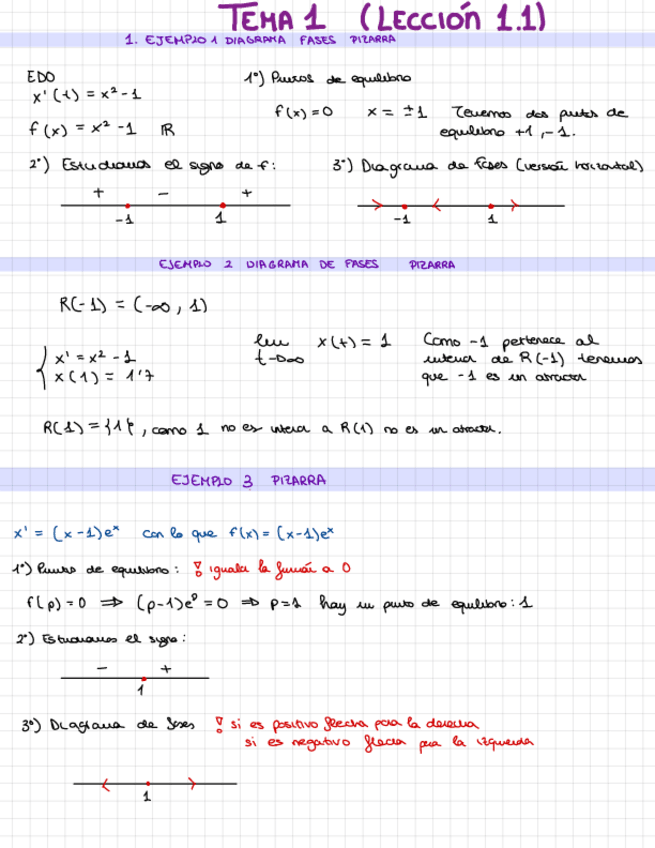 TEMA 1 (LECCIÓN 1.1)
1. EJEMPLO 1 DIAGRAMA FASES PIZARRA
EDO
x'(t) = x² - 1
f(x) = x² - 1 ℝ
1º) Puntos de equilibrio
f(x) = 0 x = ±1 Tenemos dos puntos de
equilibrio +1, -1.
2º) Estudiamos el signo de f:
+ - +
-1 1
3º) Diagrama de fases (versión horizontal)
-1 1
EJEMPLO 2 DIAGRAMA DE FASES PIZARRA
R(-1) = (-∞, 1)
{ x' = x² - 1
x(1) = 1'7
lim x(t) = 1
t→∞
Como -1 pertenece al
interior de R(-1) tenemos
que -1 es un atractor
R(1) = {1}, como 1 no es interior a R(1) no es un atractor.
EJEMPLO 3 PIZARRA
x' = (x-1)eˣ con lo que f(x) = (x-1)eˣ
1º) Puntos de equilibrio: ! iguala la función a 0
f(p) = 0 ⇒ (p-1)eᵖ = 0 ⇒ p=1 hay un punto de equilibrio: 1
2º) Estudiamos el signo:
- +
1
3º) Diagrama de fases ! si es positivo flecha para la derecha
si es negativo flecha para la izquierda
1